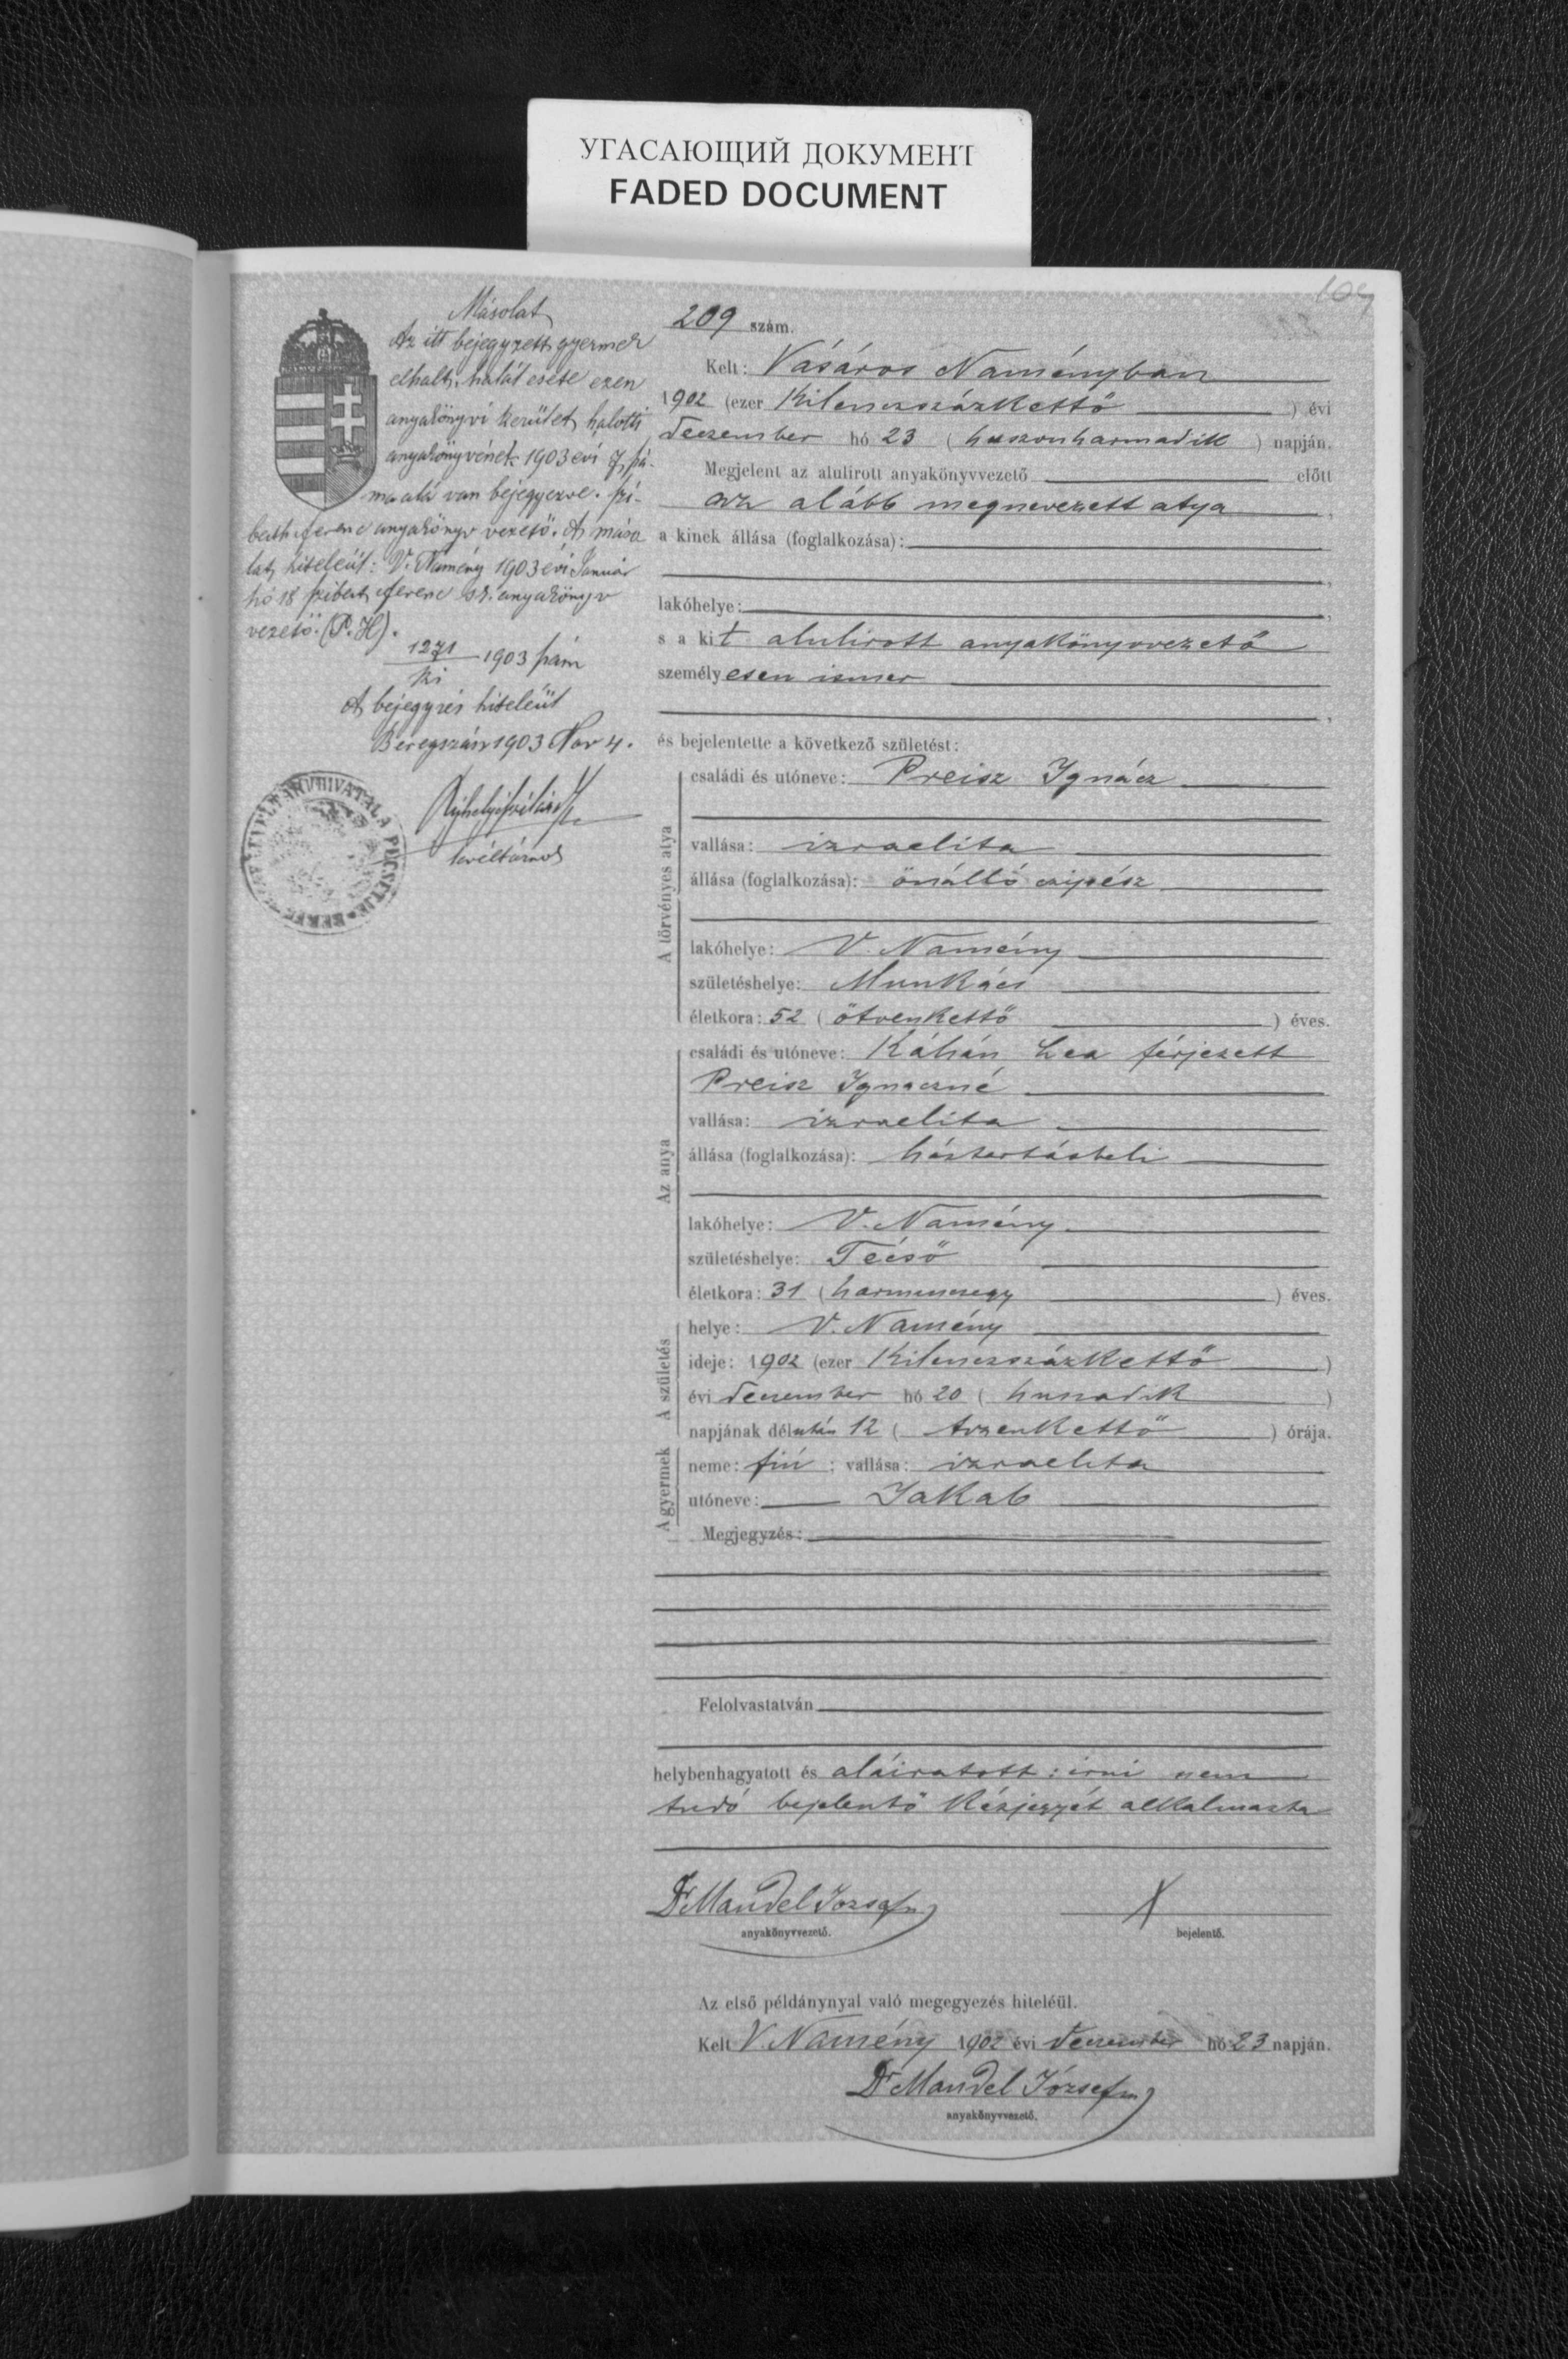 УГАСАЮЩИЙ ДОКУМЕНТ
FADED DOCUMENT
109
Másolat
Az itt bejegyzett gyermek
elhalt, halál esete ezen
anyakönyvi kerület halotti
anyakönyvének 1903 évi 7 szá-
ma alá van bejegyezve. Szi-
barth Ferenc anyakönyv vezető. A máso
lat hiteléűl: V. Namény 1903 évi Január
hó 18 Ferenc s.k. anyakönyv
vezető. (P. H).
1271
ki 1903 szám
A bejegyzés hiteléűl
Beregszász 1903 Nov 4.
levéltárnok
209 szám.
Kelt: Vásáros Naményban
1902 (ezer kilenczszázkettő ) évi
deczember hó 23 (huszonharmadik ) napján.
Megjelent az alulírott anyakönyvvezető előtt
az alább megnevezett atya ,
a kinek állása (foglalkozása):
,
lakóhelye: ,
s a kit alulírott anyakönyvvezető
személyesen ismer
,
és bejelentette a következő születést:
A törvényes atya
családi és utóneve: Preisz Ignácz
vallása: izraelita
állása (foglalkozása): önálló czipész
lakóhelye: V. Namény
születéshelye: Munkács
életkora: 52 (ötvenkettő ) éves.
Az anya
családi és utóneve: Káhán Lea férjezett
Preisz Ignáczné
vallása: izraelita
állása (foglalkozása): háztartásbeli
lakóhelye: V. Namény
születéshelye: Técső
életkora: 31 (harminczegy ) éves.
A születés
helye: V. Namény
ideje: 1902 (ezer kilenczszázkettő )
évi deczember hó 20 ( huszadik )
napjának délután 12 ( tizenkettő ) órája.
A gyermek
neme: fiú ; vallása: izraelita
utóneve: Jakab
Megjegyzés:
Felolvastatván
helybenhagyatott és aláiratott: irni nem
tudó bejelentő kézjegyét alkalmazta
Dr Mandel József X
anyakönyvvezető. bejelentő.
Az első példánynyal való megegyezés hiteléül.
Kelt V. Namény 1902 évi deczember hó 23 napján.
Dr Mandel József
anyakönyvvezető.